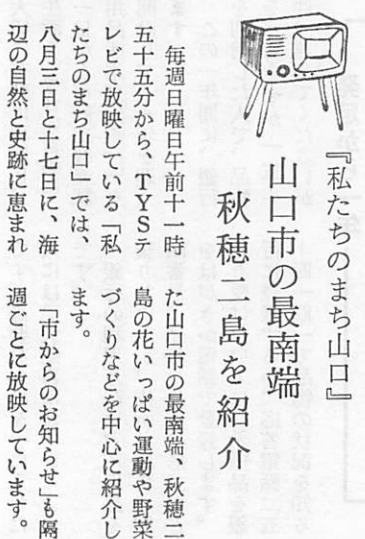 『私たちのまち山口』
山口市の最南端
秋穂二島を紹介
毎週日曜日午前十一時
五十五分から、TYSテ
レビで放映している「私
たちのまち山口」では、
八月三日と十七日に、海
辺の自然と史跡に恵まれ
た山口市の最南端、秋穂二
島の花いっぱい運動や野菜
づくりなどを中心に紹介し
ます。
「市からのお知らせ」も隔
週ごとに放映しています。